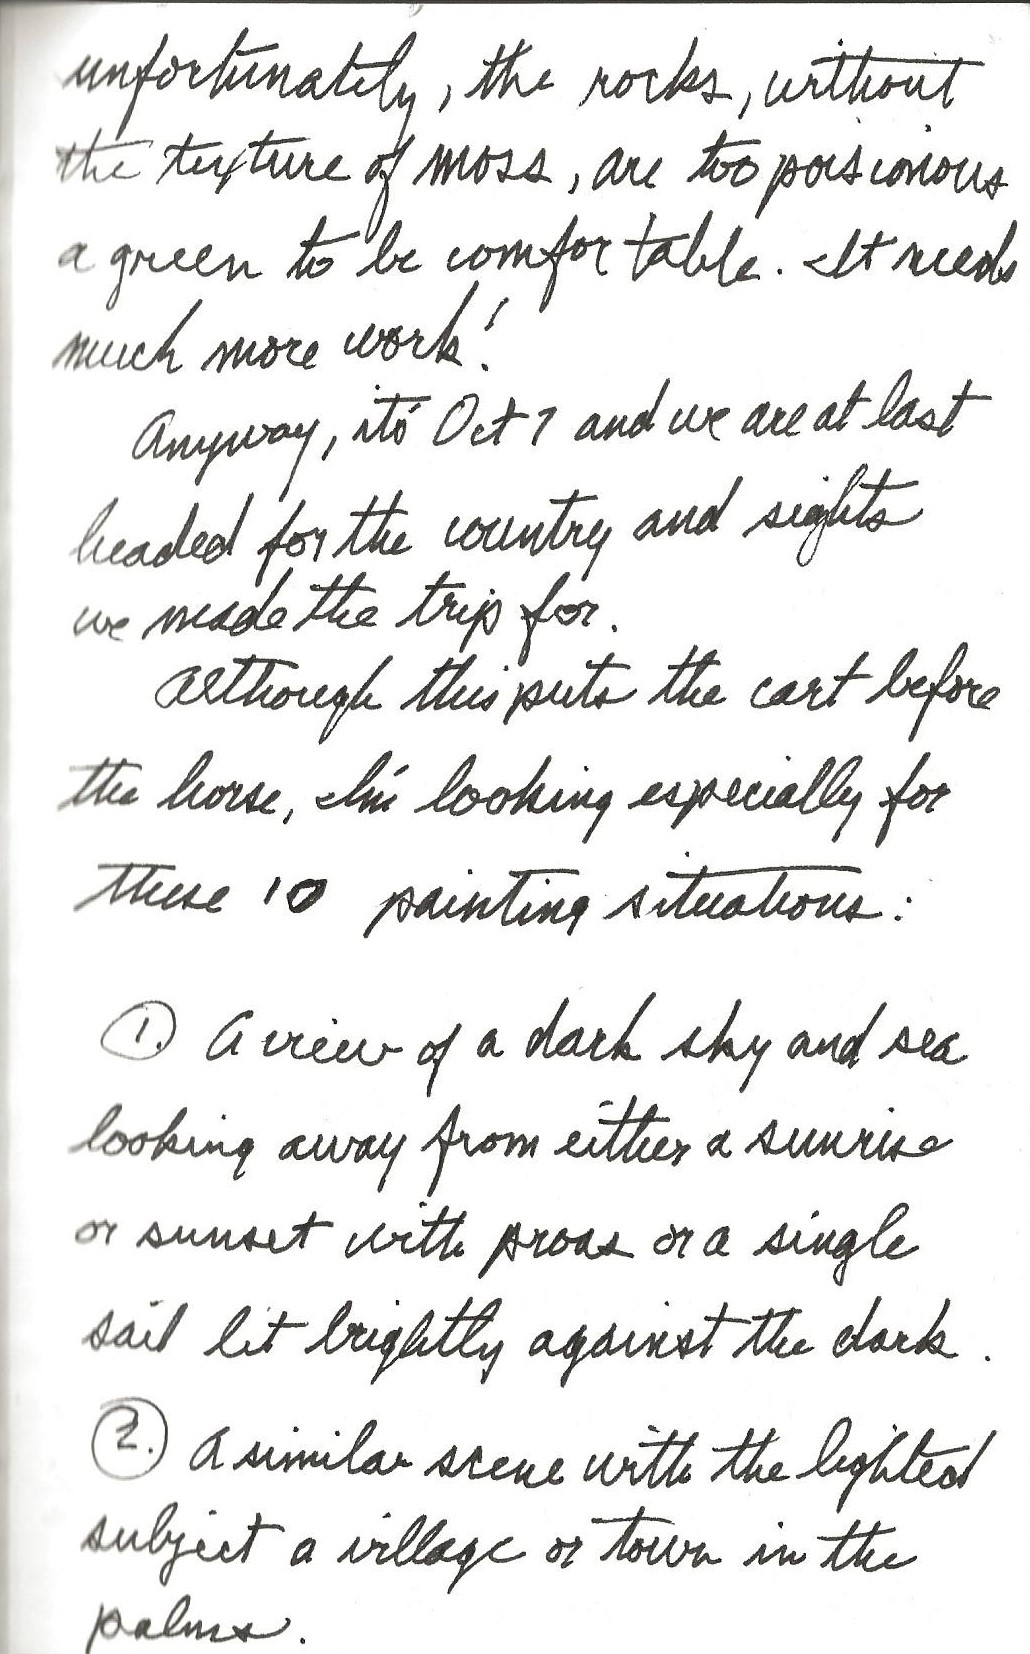 unfortunately, the rocks, without
the texture of moss, are too poisionous
a green to be comfortable. It needs
much more work!
Anyway, it's Oct 7 and we are at last
headed for the country and sights
we made the trip for.
Although this puts the cart before
the horse, I'm looking especially for
these 10 painting situations:
1. A view of a dark sky and sea
looking away from either a sunrise
or sunset with proas or a single
sail lit brightly against the dark.
2. A similar scene with the lighted
subject a village or town in the
palms.